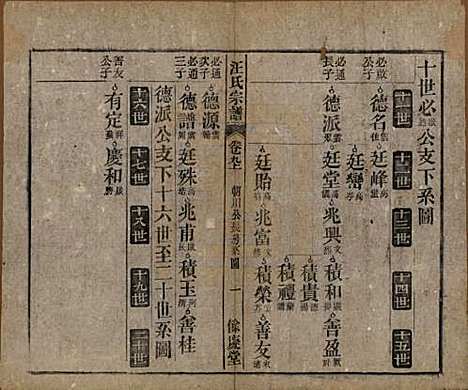 十世必啟公支下系圖
十一世 十二世 十三世 十四世 十五世
必啟長子 德名 廷峰
廷巒
必通長子 德派 廷堂 兆興 積和 善盈
積貴
積禮
廷貽 兆富 積榮 善友
汪氏宗譜 卷九 朝川公長房系圖 一 餘慶堂
必通次子 德源
必通三子 德譜 廷殊 兆甫 積玉 善桂
德派公支下十六世至二十世系圖
十六世 十七世 十八世 十九世 二十世
善友公子 有定 慶和